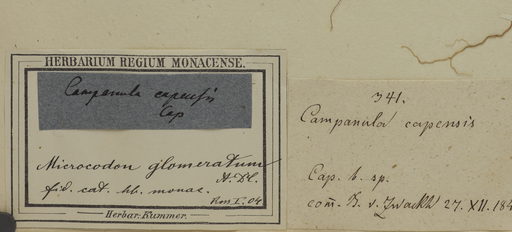 HERBARIUM REGIUM MONACENSE.
Campanula capensis
Cap
Microcodon glomeratum
A. DC.
fid. cat. hb. monac.
Ross I. 04
Herbar. Kummer.
341.
Campanula capensis
Cap. b. sp.
com. B. v. Zwackh 27. XII. 184